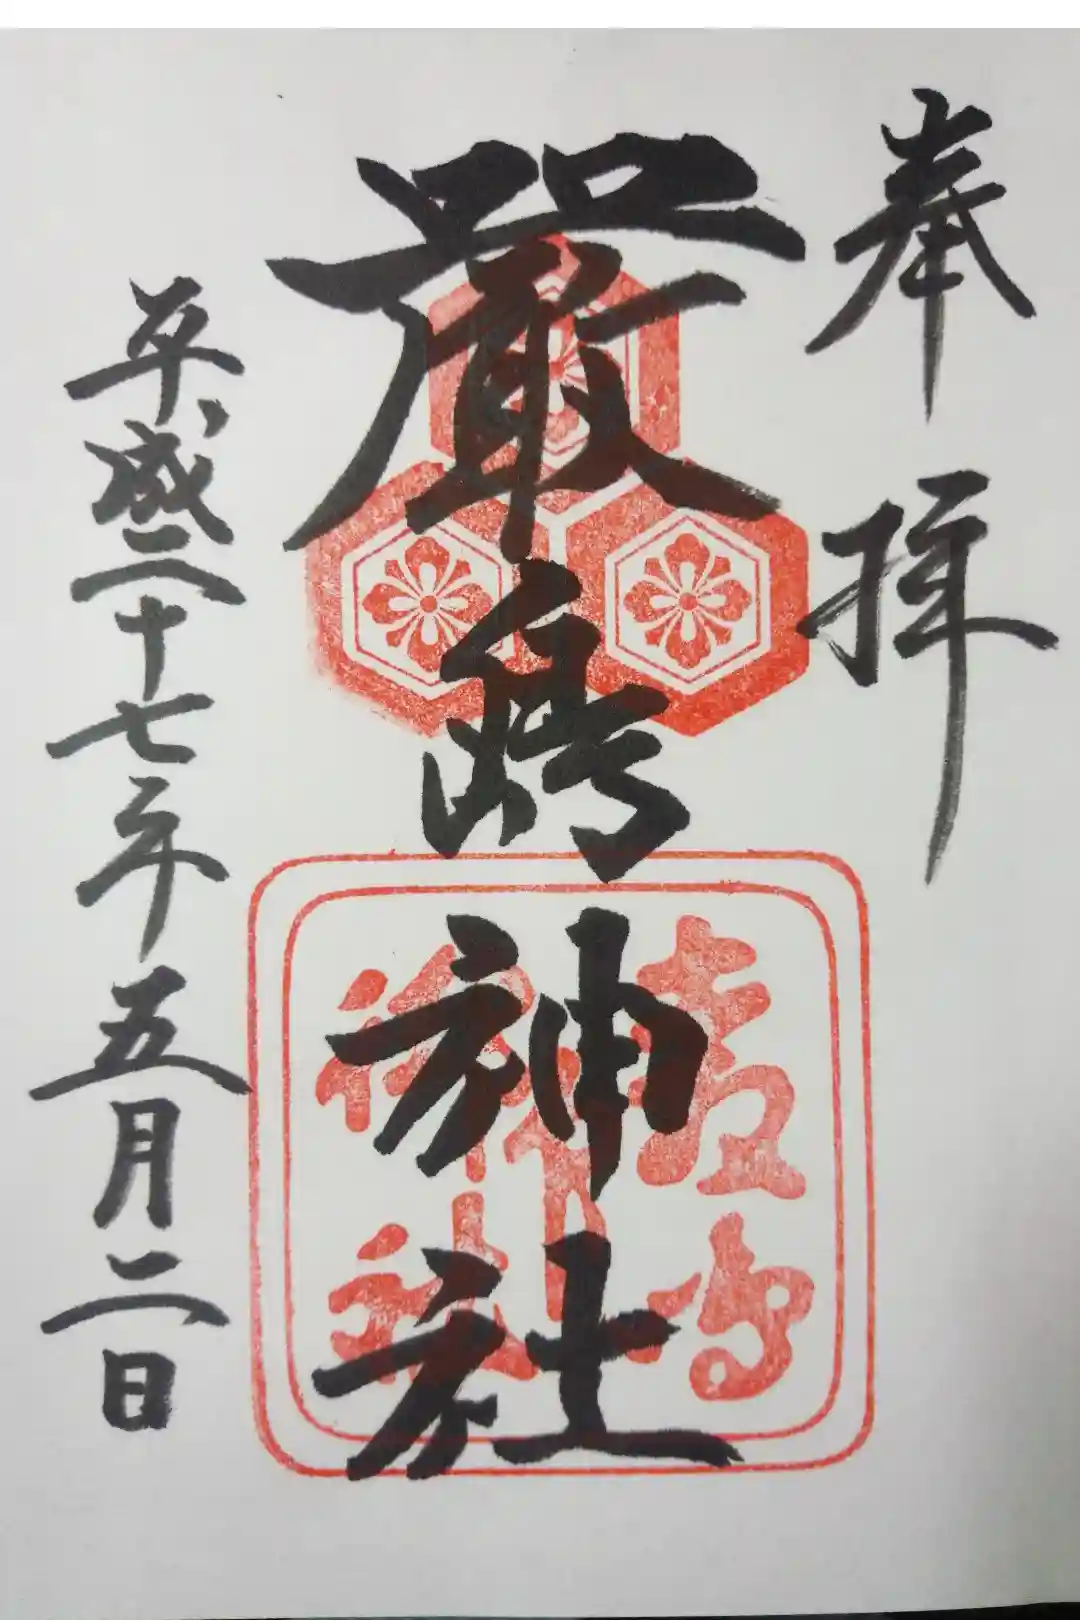 奉拝
厳島神社
平成二十七年五月二日